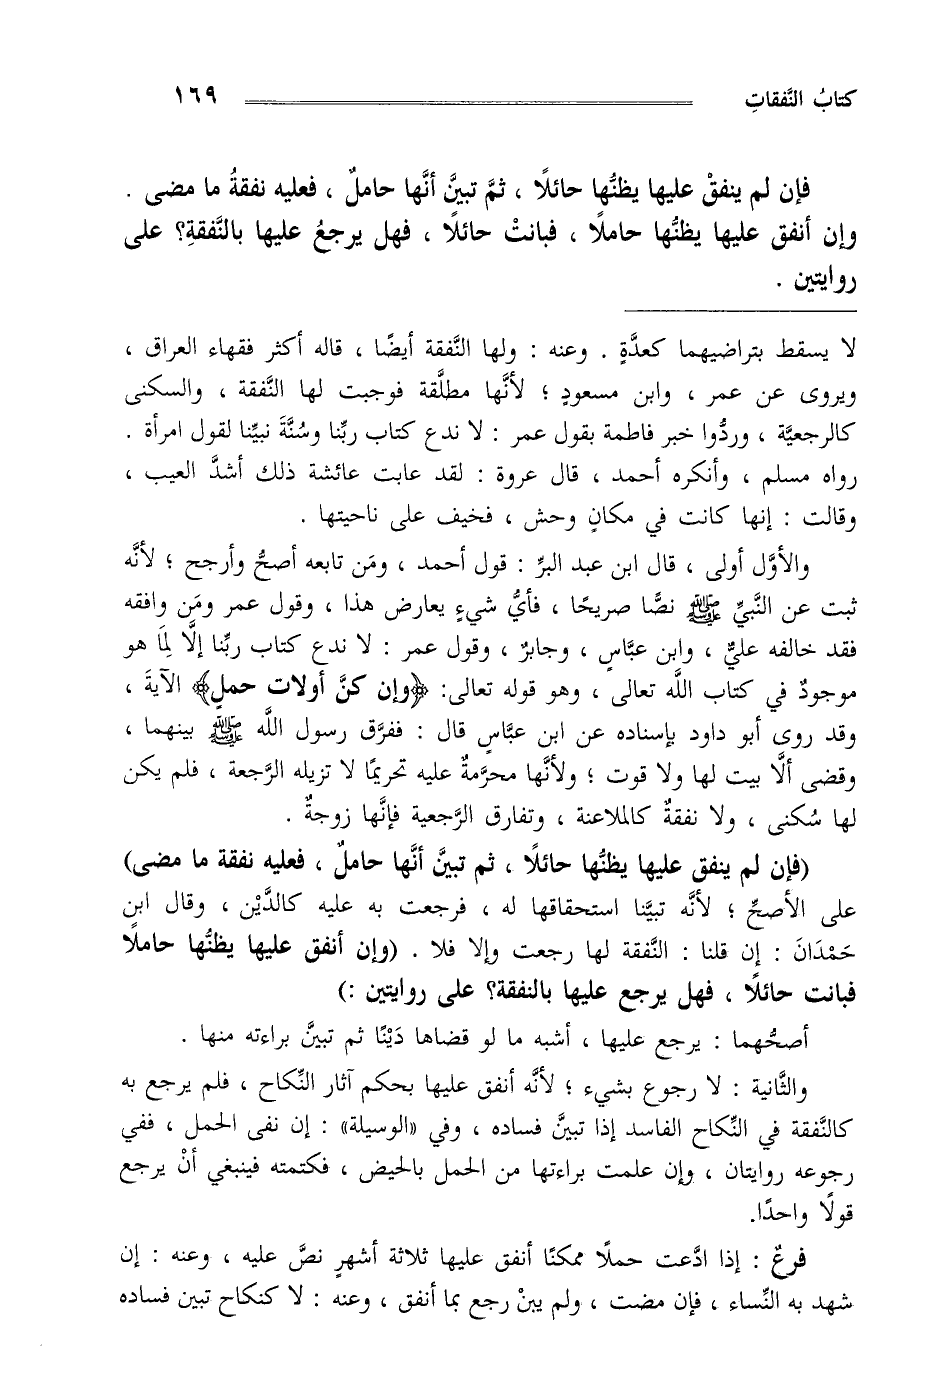 كتابُ النَّفقاتِ ١٦٩
فإن لم ينفقْ عليها يظنُّها حائلًا ، ثمَّ تبينَّ أنَّها حاملٌ ، فعليه نفقةُ ما مضى .
وإن أنفق عليها يظنُّها حاملًا ، فبانتْ حائلًا ، فهل يرجعُ عليها بالنَّفقةِ؟ على
روايتين .
لا يسقط بتراضيهما كعدَّةٍ . وعنه : ولها النَّفقة أيضًا ، قاله أكثر فقهاء العراق ،
ويروى عن عمر ، وابن مسعودٍ ؛ لأنَّها مطلَّقة فوجبت لها النَّفقة ، والسكنى
كالرجعيَّة ، وردُّوا خبر فاطمة بقول عمر : لا ندع كتاب ربِّنا وسُنَّةَ نبيِّنا لقول امرأة .
رواه مسلم ، وأنكره أحمد ، قال عروة : لقد عابت عائشة ذلك أشدَّ العيب ،
وقالت : إنها كانت في مكانٍ وحش ، فخيف على ناحيتها .
والأوَّل أولى ، قال ابن عبد البرِّ : قول أحمد ، ومَن تابعه أصحُّ وأرجح ؛ لأنَّه
ثبت عن النَّبيِّ ﷺ نصًّا صريحًا ، فأيُّ شيءٍ يعارض هذا ، وقول عمر ومَن وافقه
فقد خالفه عليٌّ ، وابن عبَّاسٍ ، وجابرٌ ، وقول عمر : لا ندع كتاب ربِّنا إلَّا لِمَا هو
موجودٌ في كتاب اللَّه تعالى ، وهو قوله تعالى: ﴿وإن كنَّ أولات حملٍ﴾ الآيةَ ،
وقد روى أبو داود بإسناده عن ابن عبَّاسٍ قال : ففرَّق رسول اللَّه ﷺ بينهما ،
وقضى ألَّا بيت لها ولا قوت ؛ ولأنَّها محرَّمةٌ عليه تحريمًا لا تزيله الرَّجعة ، فلم يكن
لها سُكنى ، ولا نفقةٌ كالملاعنة ، وتفارق الرَّجعية فإنَّها زوجةٌ .
(فإن لم ينفق عليها يظنُّها حائلًا ، ثم تبينَّ أنَّها حاملٌ ، فعليه نفقة ما مضى)
على الأصحِّ ؛ لأنَّه تبيَّنا استحقاقها له ، فرجعت به عليه كالدَّيْن ، وقال ابن
حَمْدَانَ : إن قلنا : النَّفقة لها رجعت وإلا فلا . (وإن أنفق عليها يظنُّها حاملًا
فبانت حائلًا ، فهل يرجع عليها بالنفقة؟ على روايتين :)
أصحُّهما : يرجع عليها ، أشبه ما لو قضاها دَيْنًا ثم تبينَّ براءته منها .
والثَّانية : لا رجوع بشيء ؛ لأنَّه أنفق عليها بحكم آثار النِّكاح ، فلم يرجع به
كالنَّفقة في النِّكاح الفاسد إذا تبينَّ فساده ، وفي «الوسيلة» : إن نفى الحمل ، ففي
رجوعه روايتان ، وإن علمت براءتها من الحمل بالحيض ، فكتمته فينبغي أنْ يرجع
قولًا واحدًا.
فرعٌ : إذا ادَّعت حملًا ممكنًا أنفق عليها ثلاثة أشهرٍ نصَّ عليه ، وعنه : إن
شهد به النِّساء ، فإن مضت ، ولم يبنْ رجع بما أنفق ، وعنه : لا كنكاح تبين فساده